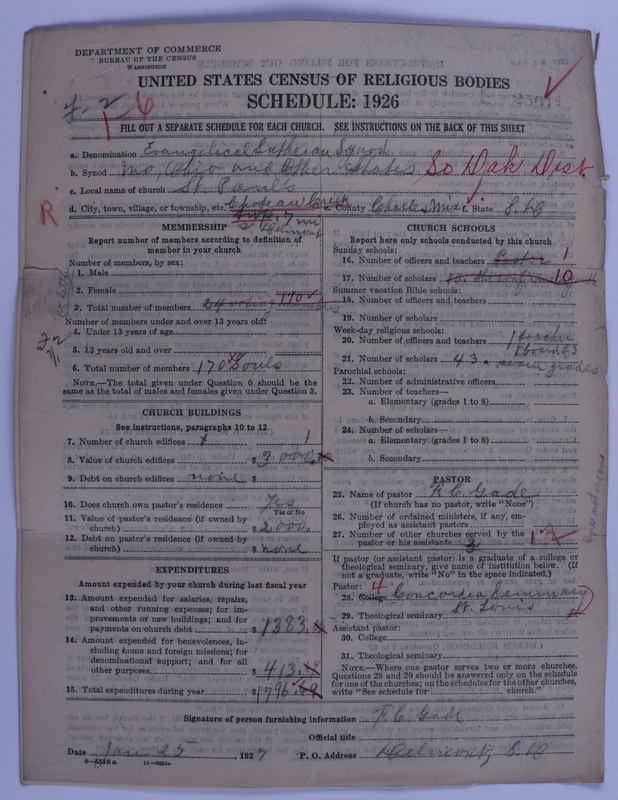 DEPARTMENT OF COMMERCE
BUREAU OF THE CENSUS
WASHINGTON
UNITED STATES CENSUS OF RELIGIOUS BODIES
SCHEDULE: 1926
1-6
FILL OUT A SEPARATE SCHEDULE FOR EACH CHURCH. SEE INSTRUCTIONS ON THE BACK OF THIS SHEET
a. Denomination Evangelical Lutheran Synod
b. Synod Mo, Ohio and Other States So Dak Dist
c. Local name of church St. Pauls
d. City, town, village, or township, etc. Choteau Creek e. County Charles Mix f. State S. D.
R.
MEMBERSHIP
Report number of members according to definition of
member in your church
Number of members, by sex:
1. Male
2. Female
3. Total number of members 24 voting 170
Number of members under and over 13 years old:
4. Under 13 years of age
5. 13 years old and over
6. Total number of members 170 Souls
NOTE.—The total given under Question 6 should be the
same as the total of males and females given under Question 3.
CHURCH BUILDINGS
See instructions, paragraphs 10 to 12
7. Number of church edifices 1
8. Value of church edifices $ 3000
9. Debt on church edifices none $
10. Does church own pastor's residence? Yes
Yes or No
11. Value of pastor's residence (if owned by
church) $ 2000
12. Debt on pastor's residence (if owned by
church) $ none
EXPENDITURES
Amount expended by your church during last fiscal year
13. Amount expended for salaries, repairs,
and other running expenses; for im-
provements or new buildings; and for
payments on church debt $ 1383.
14. Amount expended for benevolences, in-
cluding home and foreign missions; for
denominational support; and for all
other purposes $ 413.
15. Total expenditures during year $ 1796.
CHURCH SCHOOLS
Report here only schools conducted by this church
Sunday schools:
16. Number of officers and teachers Pastor 1
17. Number of scholars 10
Summer vacation Bible schools:
18. Number of officers and teachers
19. Number of scholars
Week-day religious schools:
20. Number of officers and teachers 1 teacher
21. Number of scholars 43 seven grades
Parochial schools:
22. Number of administrative officers
23. Number of teachers—
a. Elementary (grades 1 to 8)
b. Secondary
24. Number of scholars—
a. Elementary (grades 1 to 8)
b. Secondary
PASTOR
25. Name of pastor F. C. Gade
(If church has no pastor, write "None")
26. Number of ordained ministers, if any, em-
ployed as assistant pastors
27. Number of other churches served by the
pastor or his assistants 3
If pastor (or assistant pastor) is a graduate of a college or
theological seminary, give name of institution below. (If
not a graduate, write "No" in the space indicated.)
Pastor: 4
28. College Concordia Seminary
29. Theological seminary St. Louis
Assistant pastor:
30. College
31. Theological seminary
NOTE.—Where one pastor serves two or more churches,
Questions 28 and 29 should be answered only on the schedule
for one of the churches; on the schedules for the other churches,
write "See schedule for church."
Signature of person furnishing information F. C. Gade
Official title
Date Jan 25, 1927 P. O. Address Delmont, S. D.
8—5518a 11—9004a